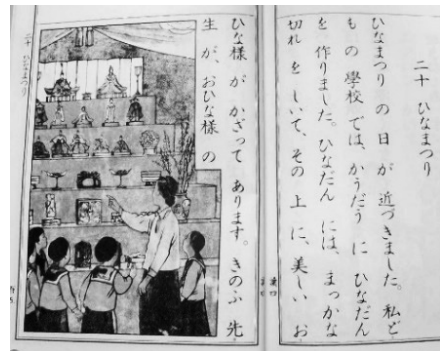 二十 ひなまつり
ひなまつり の 日 が 近づきました。私ど
も の 學校 では、かうだう に ひなだん
を 作りました。ひなだん には、まっかな
切れ を しいて、その 上 に、美しい お
ひな様 が かざって あります。きのふ 先
生 が、おひな様 の
二十 ひなまつり